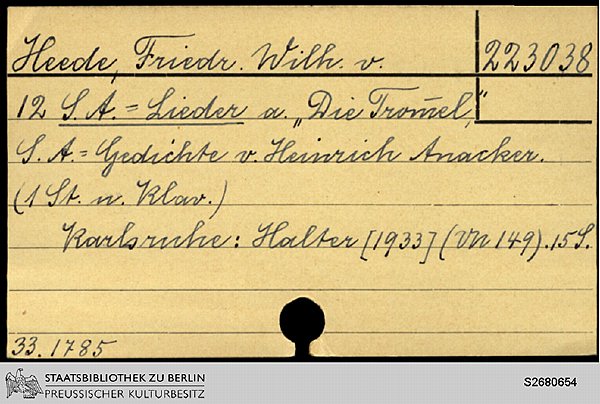 Heede, Friedr. Wilh. v.
223038
12 S. A.=Lieder a. „Die Trom̅el,“
S. A.=Gedichte v. Heinrich Anacker.
(1 St. u. Klav.)
Karlsruhe: Halter [1933] (VN 149). 15 S.
33. 1785
STAATSBIBLIOTHEK ZU BERLIN
PREUSSISCHER KULTURBESITZ
S2680654